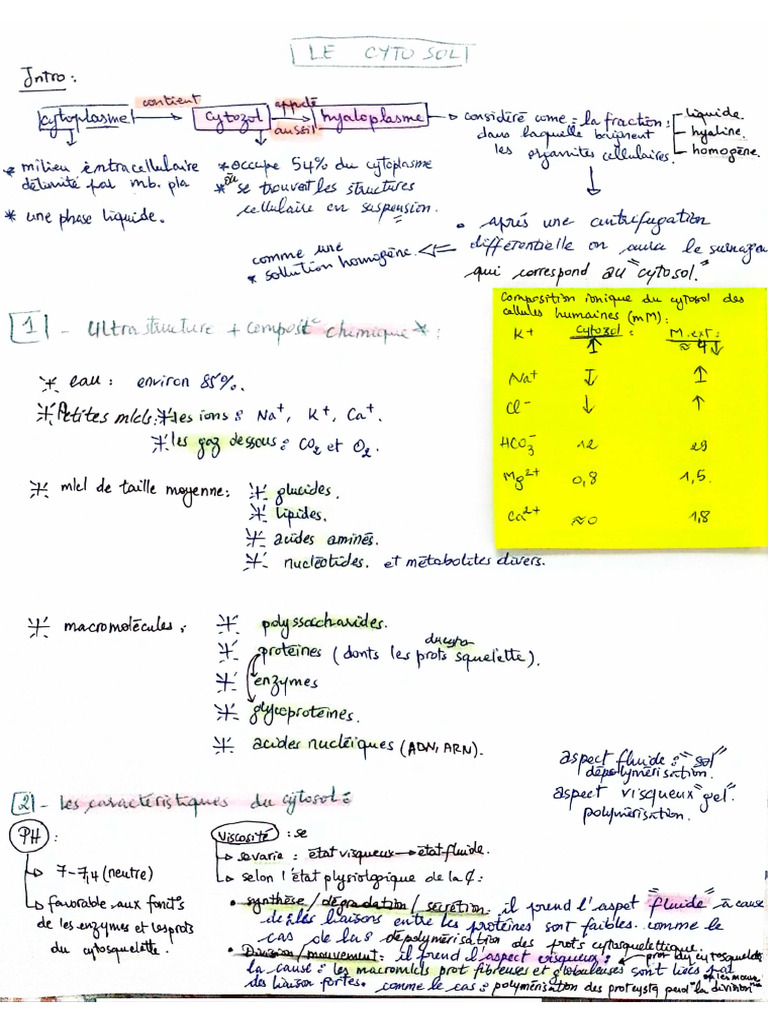 LE CYTOSOL
Intro :
cytoplasme contient cytozol appelé aussi hyaloplasme
considéré come : la fraction :
dans laquelle baignent
les organites cellulaires.
liquide.
hyaline.
homogène.
* milieu intracellulaire
délimité par mb. pla
* une phase liquide.
* occupe 54% du cytoplasme
* où se trouvent les structures
cellulaire en suspension.
• après une centrifugation
différentielle on aura le surnagea
qui correspond au "cytosol."
comme une
* sollution homogène.
1 - Ultrastructure + composit° chemique * :
* eau : environ 85%.
* Petites mlcls : * les ions : Na+, K+, Ca+.
* les gaz dessous : CO2 et O2.
* mlcl de taille moyenne : * glucides.
* lipides.
* acides aminés.
* nucléotides. et métabolites divers.
* macromolécules : * polyssaccharides.
* protéines (donts les prots squelette).
* enzymes
* glycoprotéines.
* acides nucléiques (ADN, ARN).
Composition ionique du cytosol des
cellules humaines (mM) :
K+ cytozol : ↑ M.ext : ≈ 4 ↓
Na+ ↓ ↑
Cl- ↓ ↑
HCO3- 12 29
Mg2+ 0,8 1,5.
Ca2+ ≈0 1,8
aspect fluide : "sol"
dépolymérisation.
aspect visqueux "gel".
polymérisation.
2 - les caractéristiques du cytosol :
PH :
7-7,4 (neutre)
favorable aux fonct°s
de les enzymes et les prots
du cytosquelette.
Viscosité : se
se varie : état visqueux → état fluide.
selon l'état physiologique de la ¢ :
• synthèse / dégradation / secrétion : il prend l'aspet "fluide" à cause
de : les liaisons entre les protéines sont faibles. comme le
cas de la dépolymérisation des prots cytosquelettique.
• Division / mouvement : il prend l'aspect visqueux : prot du cytosquelet
la cause : les macromlcls prot fibreuses et globuleuses sont liées par
des liaison fortes. comme le cas : polymérisation des protcystq pend la division